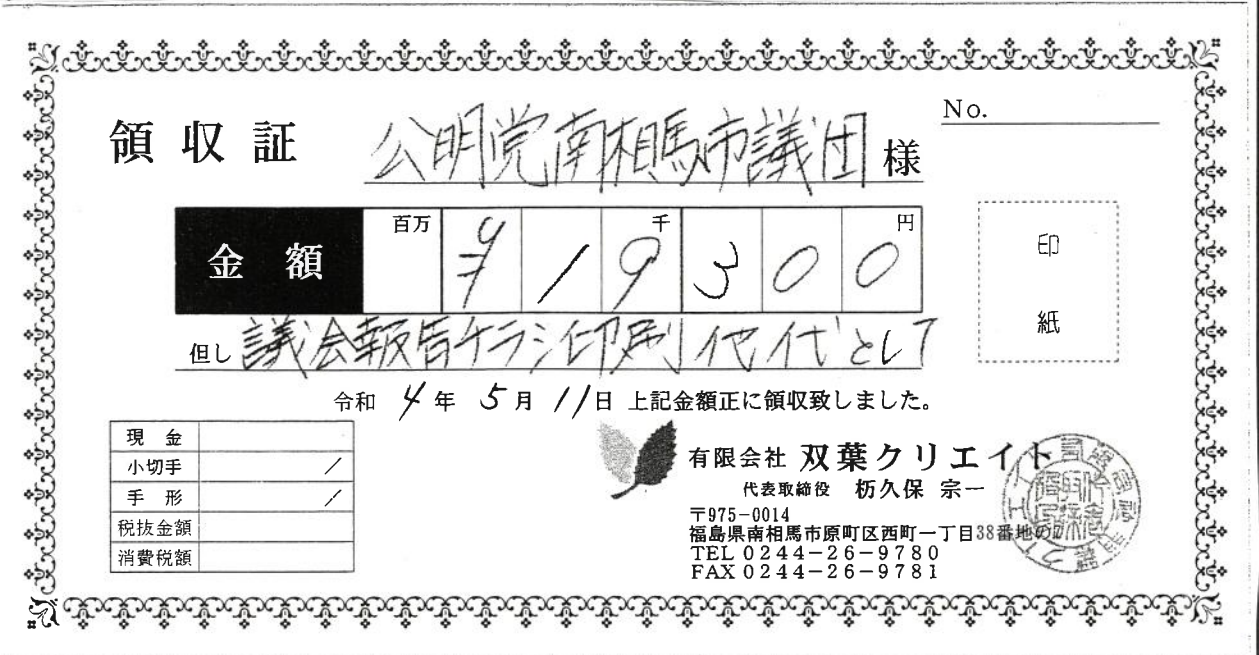 領収証 公明党南相馬市議団 様
No.
金額 百万 千 円
¥19300
印
紙
但し 議会報告チラシ印刷代代として
令和 4年 5月 11日 上記金額正に領収致しました。
現金
小切手 /
手形 /
税抜金額
消費税額
有限会社 双葉クリエイト
代表取締役 枥久保 宗一
〒975-0014
福島県南相馬市原町区西町一丁目38番地の
TEL 0244-26-9780
FAX 0244-26-9781